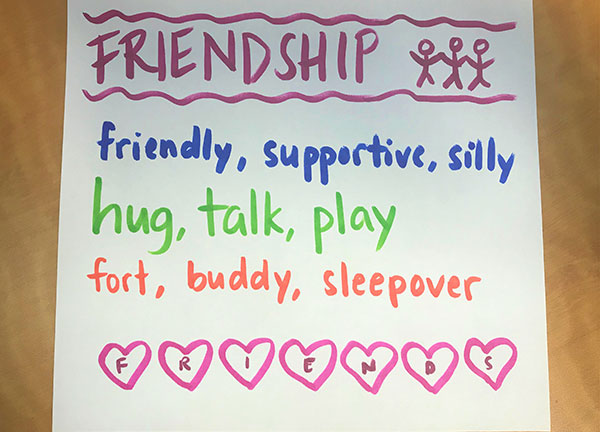 FRIENDSHIP
friendly, supportive, silly
hug, talk, play
fort, buddy, sleepover
FRIENDS